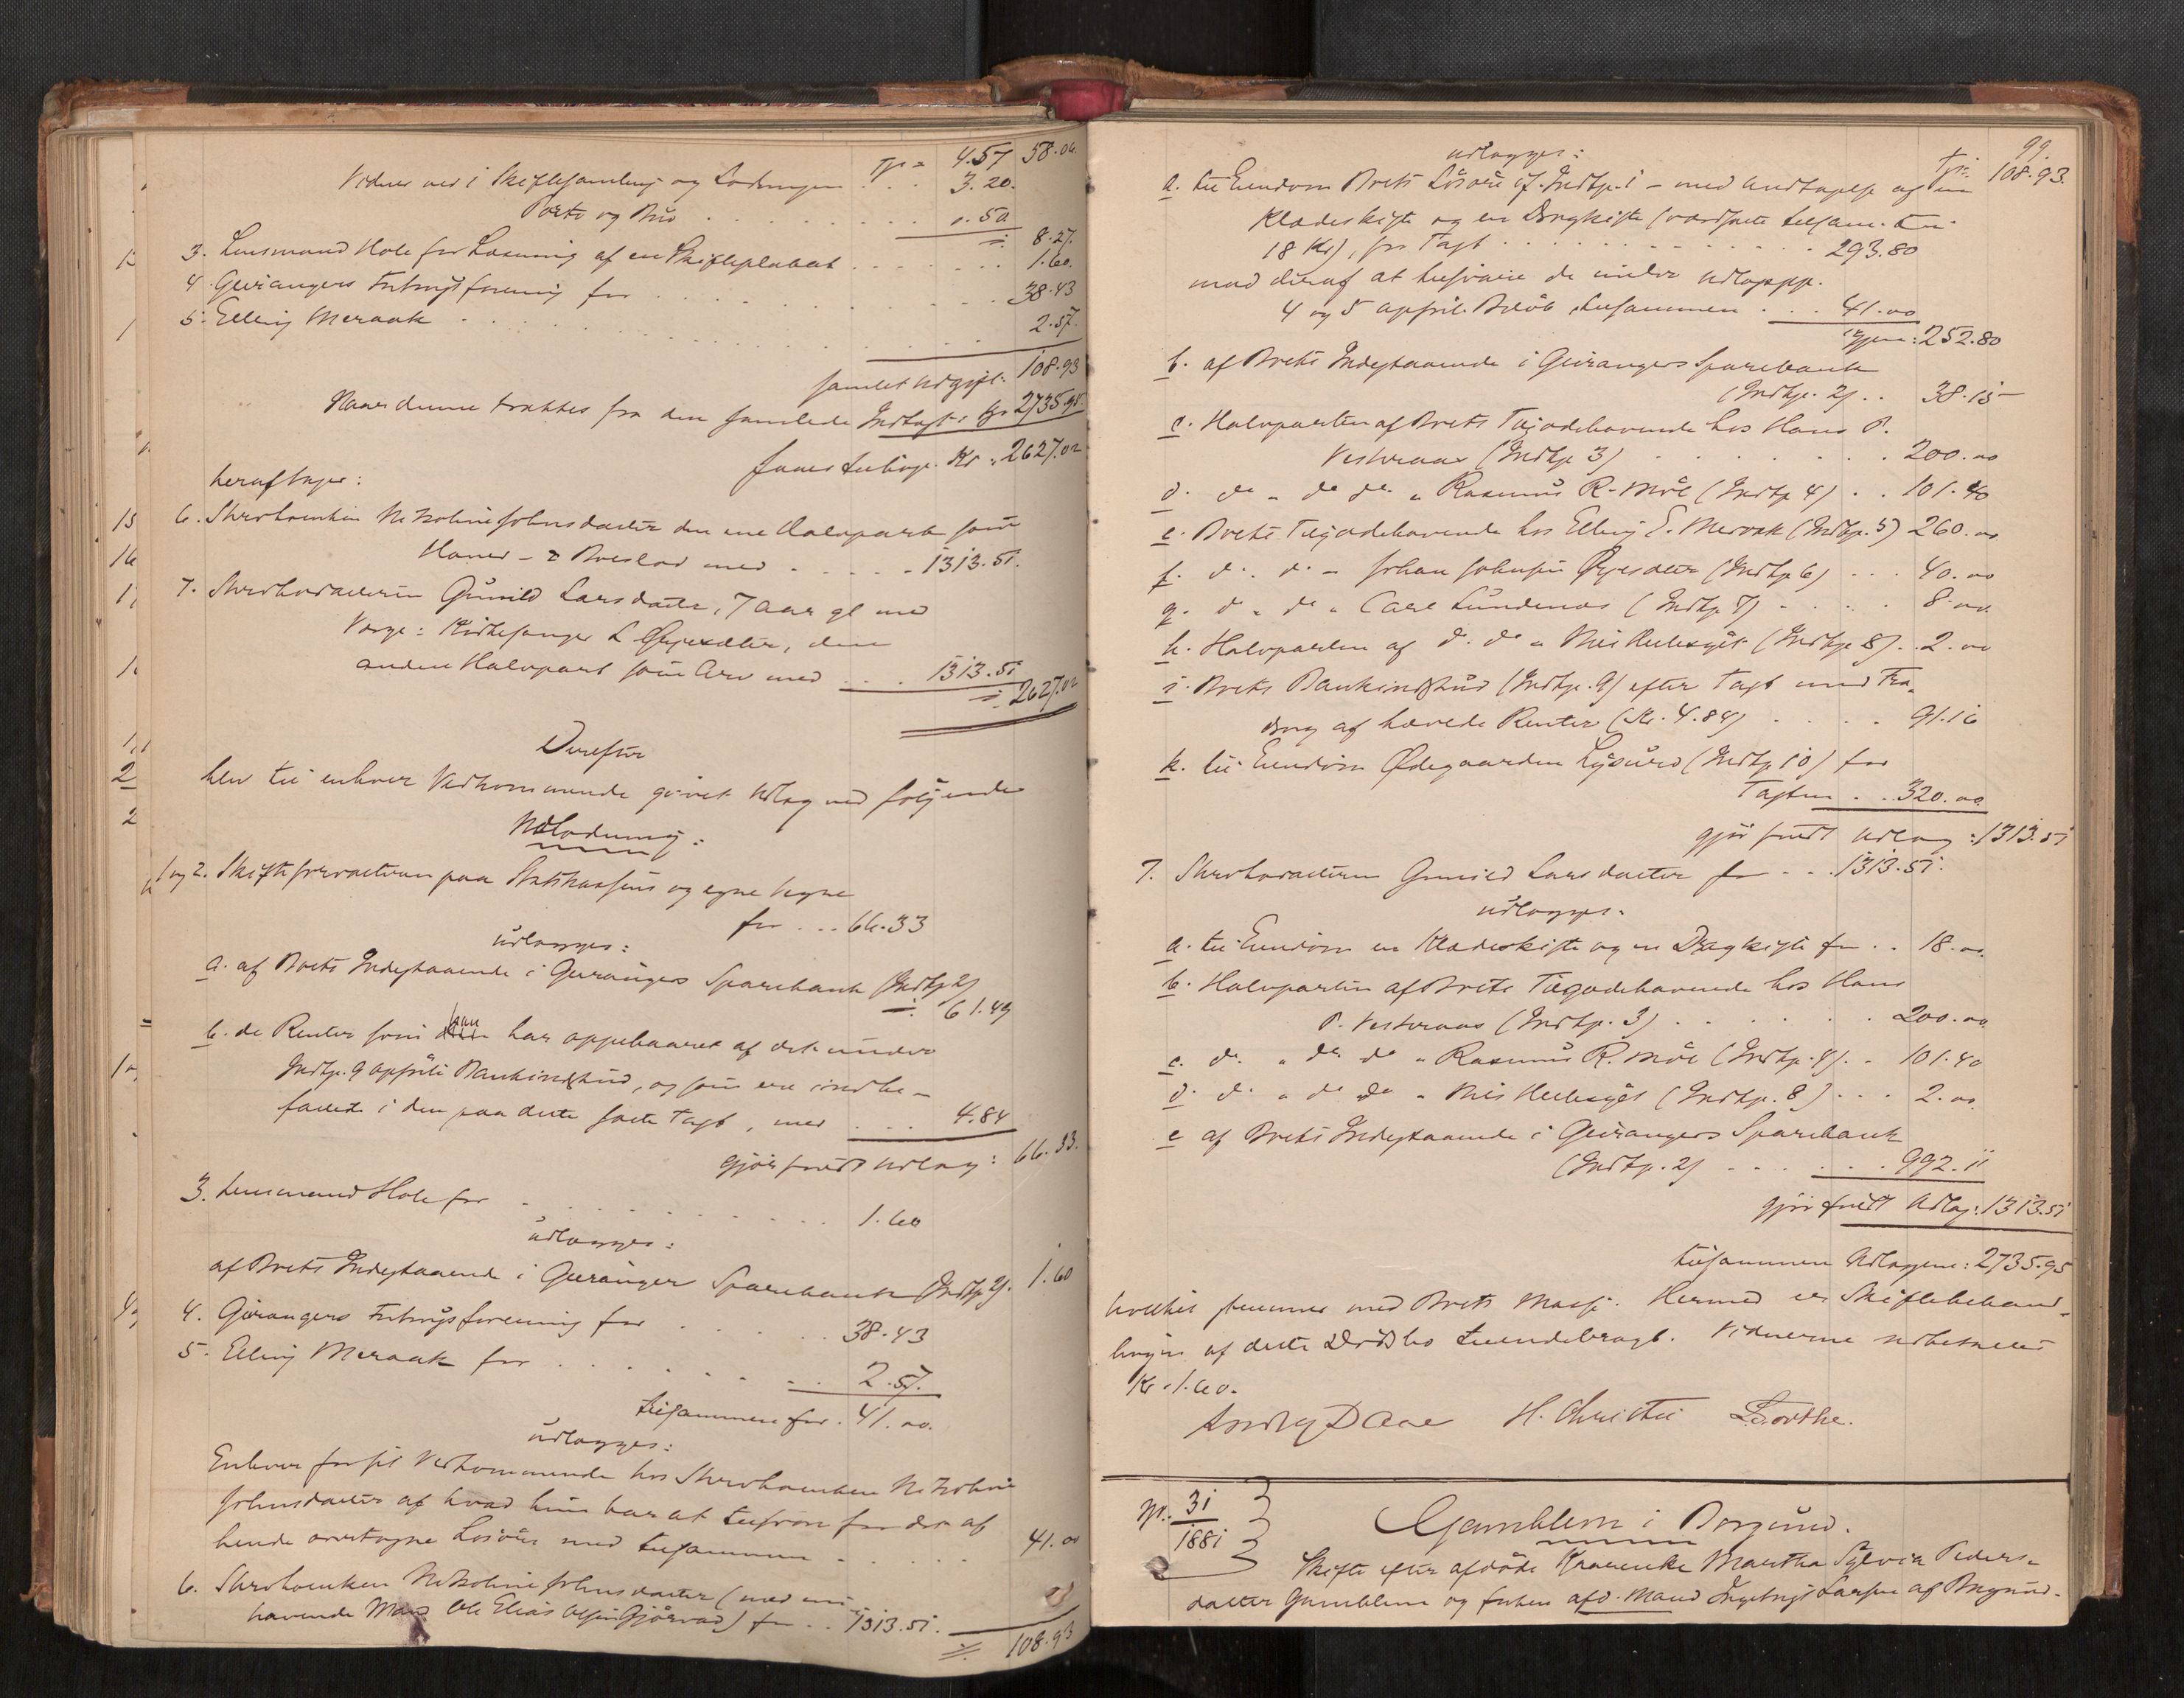 Tpt = 4.57 58.06.
Vidner ved i Skiftesamling og Lodningen . . . 3.20.
Porto og Bud . . . . . . . . . 0.50
= 8.27.
3. Lensmand Hole for Læsning af en Skifteplakat . . . . . . . 1.60.
4. Geirangers Forbrugsforening for . . . . . . . . 38.43
5. Elling Meraak . . . . . . . . . . 2.57.
samlet Udgift: 108.93
Naar denne trækkes fra den samlede Indtægt: Kr 2735.95
faaes tilovers Kr. 2627.02
heraf tages:
6. Skrvboenken Nikoline Johnsdatter den ene Halvpart som
Hoved- & Boeslod med . . . . . 1313.51.
7. Skrvbodatteren Gunild Larsdatter, 7 Aar gl med
Værge: Kirkesanger L Øyesæter, den
anden Halvpart som Arv med . . . 1313.51
= 2627.02
Derefter
blev til enhver Vedkommende gjort Udlæg ved følgende
Udlodning:
1 og 2. Skifteforvalteren paa Statskassens og egne Vegne
for . . . 66.33
udlægges:
a. af Boets Indestaaende i Geirangers Sparebank (Indtp. 2)
= 61.49
b. de Renter som han har oppebaaret af det under
Indtp. 9 opførte Bankindskud, og som ere indbe-
fattede i den paa dette satte Taxt, med . . . 4.84
gjør fuldt Udlæg: 66.33.
3. Lensmand Hole for . . . . . . . . . . 1.60
udlægges:
af Boets Indestaaende i Geiranger Sparebank (Indtp. 2). 1.60
4. Geirangers Forbrugsforening for . . . . . 38.43
5. Elling Meraak for . . . . . . . . 2.57.
tilsammen for . 41.00.
udlægges:
Enhver for sit Vedkommende hos Skrvboenken Nikoline
Johnsdatter af hvad hun har at tilsvare for det af
hende overtagne Løsøre med tilsammen . . . . . . 41.00
6. Skrvboenken Nikoline Johnsdatter (med nu-
havende Mand Ole Elias Olsen Gjørvad) for . . 1313.51.
= 108.93
99.
Tpt: 108.93.
udlægges:
a. til Eiendom Boets Løsøre if. Indtp. 1 - med Undtagelse af en
Klædeskiste og en Dragkiste (værdsatte tilsam. til
18 Kr), for Taxt . . . . . . . . . . . . . 293.80
mod deraf at tilsvare de under Udlægspp.
4 og 5 opført Beløb, tilsammen . . . . 41.00
igjen: 252.80
b. af Boets Indestaaende i Geirangers Sparebank
(Indtp. 2) . . 38.15
c. Halvparten af Boets Tilgodehavende hos Hans P.
Vesteraas (Indtp 3) . . . . . . . . 200.00
d. do " do do " Rasmus R. Møl (Indtp 4) . . 101.40
e. Boets Tilgodehavende hos Elling E. Meraak (Indtp. 5) 260.00
f. do. do " Johan Johnsen Øyesæter (Indtp 6) . . . 40.00
g. do " do " Carl Lundenæs (Indtp. 7) . . . . 8.00.
h. Halvparten af do. do " Nils Hellesylt (Indtp 8) . . 2.00
i. Boets Bankindskud (Indtp. 9) efter Taxt med Fra-
drag af hævede Renter (Kr. 4.84) . . . . . 91.16
k. til Eiendom Ødegaarden Lysurd (Indtp 10) for
Taxten . . . 320.00.
gjør fuldt Udlæg: 1313.51
7. Skrvbodatteren Gunild Larsdatter for . . . 1313.51.
udlægges.
a. til Eiendom en Klædeskiste og en Dragkiste for . . 18.00.
b. Halvparten af Boets Tilgodehavende hos Hans
P. Vesteraas (Indtp. 3) . . . . . . . . 200.00.
c. do. " do. do " Rasmus R. Møl (Indtp. 4) . . 101.40
d. do. " do do " Nils Hellesylt (Indtp. 8) . . . 2.00.
e af Boets Indestaaende i Geirangers Sparebank
(Indtp. 2) . . . . . . . . 992.11
gjør fuldt Udlæg: 1313.51
tilsammen Udlæggene: 2735.95
hvilket stemmer med Boets Masse. Hermed er Skiftebehand-
lingen af dette Dødsbo tilendebragt. Vidnerne udbetaltes
Kr. 1.60.
H. Christie
No. 31
1881
Gamblem i Borgund.
Skifte efter afdøde Kaarenke Martha Sylvia Peders-
datter Gamblem og forhen afd. Mand Ingebrigt Larsen af Borgund.